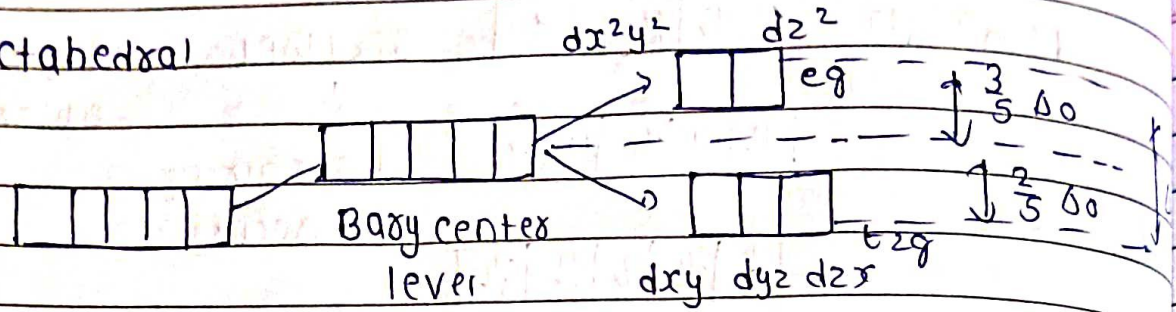 ctahedral
dx²y² dz²
eg
3/5 Δo
2/5 Δo
Bary center
lever
t2g
dxy dyz dzx